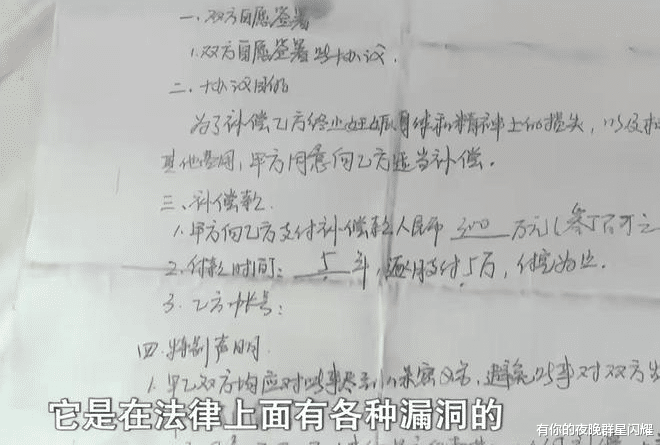 一、双方自愿签署
1.双方自愿签署此协议.
二、协议目的
为了补偿乙方终止妊娠身体和精神上的损失，以及
其他费用，甲方同意向乙方适当补偿。
三、补偿款.
1.甲方向乙方支付补偿款人民币 300 万元(叁百万元
2.付款时间: 5 年，逐月支付5万，付完为止.
3.乙方帐号:
四.特别声明.
1.甲乙双方均应对此事尽到保密义务，避免此事对双方
它是在法律上面有各种漏洞的
有你的夜晚群星闪耀